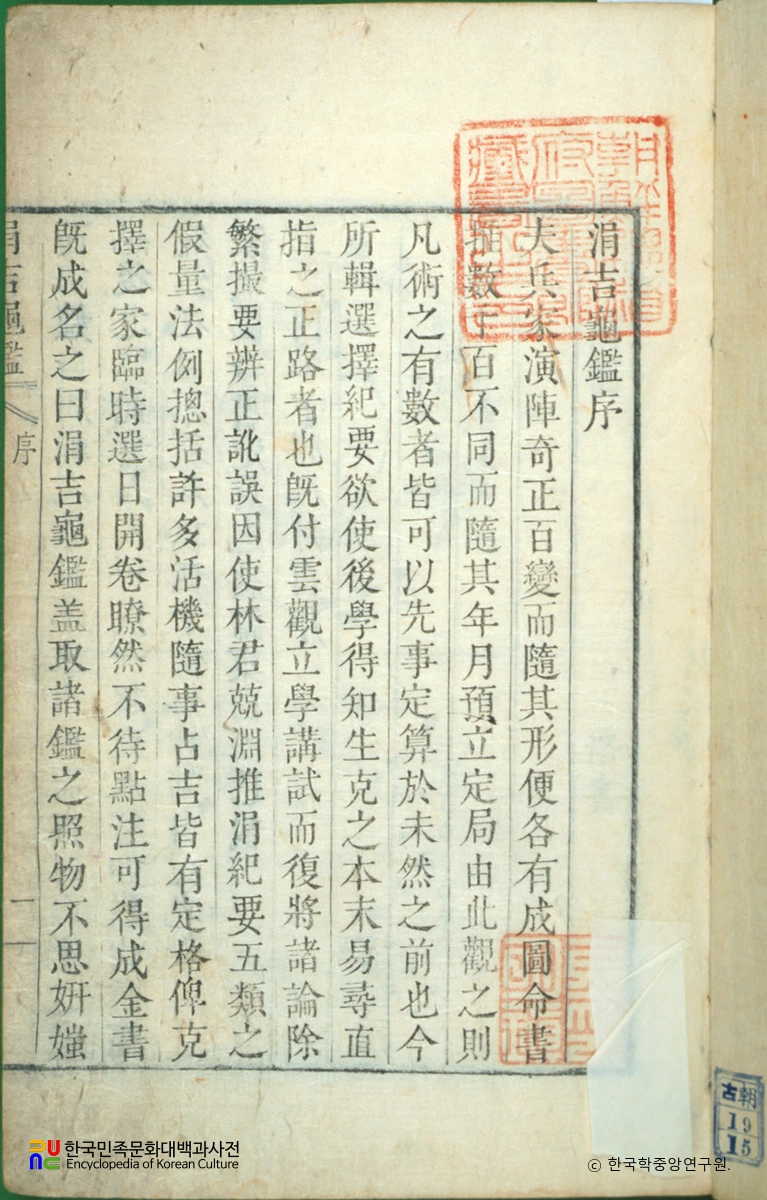 涓吉龜鑑序
夫兵家演陣奇正百變而隨其形便各有成圖命書
推數千百不同而隨其年月預立定局由此觀之則
凡術之有數者皆可以先事定算於未然之前也今
所輯選擇紀要欲使後學得知生克之本末易尋直
指之正路者也旣付雲觀立學講試而復將諸論除
繁撮要辨正訛誤因使林君兢淵推涓紀要五類之
假量法例摠括許多活機隨事占吉皆有定格俾克
擇之家臨時選日開卷瞭然不待點注可得成金書
旣成名之曰涓吉龜鑑盖取諸鑑之照物不思姸媸
涓吉龜鑑
序
一
朝古
19
15
한국민족문화대백과사전
Encyclopedia of Korean Culture
© 한국학중앙연구원.